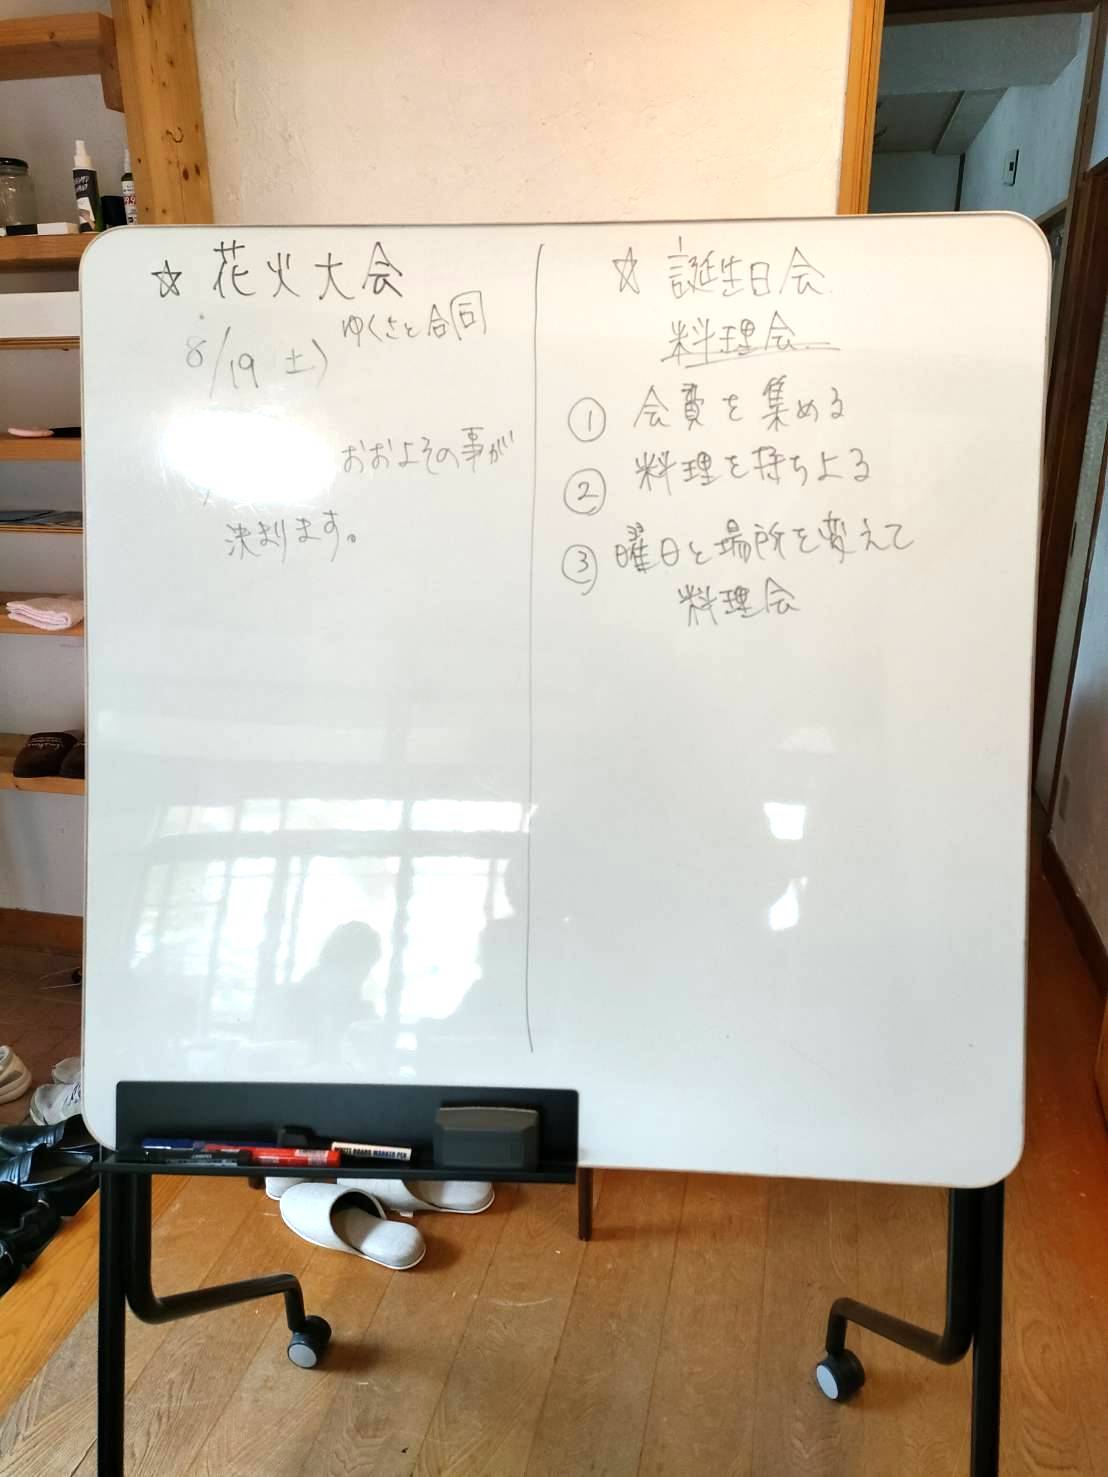 ☆ 花火大会
ゆくさと合同
8/19 土)
おおよその事が
決まります。
☆ 誕生日会
料理会
① 会費を集める
② 料理を持ちよる
③ 曜日と場所を変えて
料理会
WHITE BOARD MARKER PEN